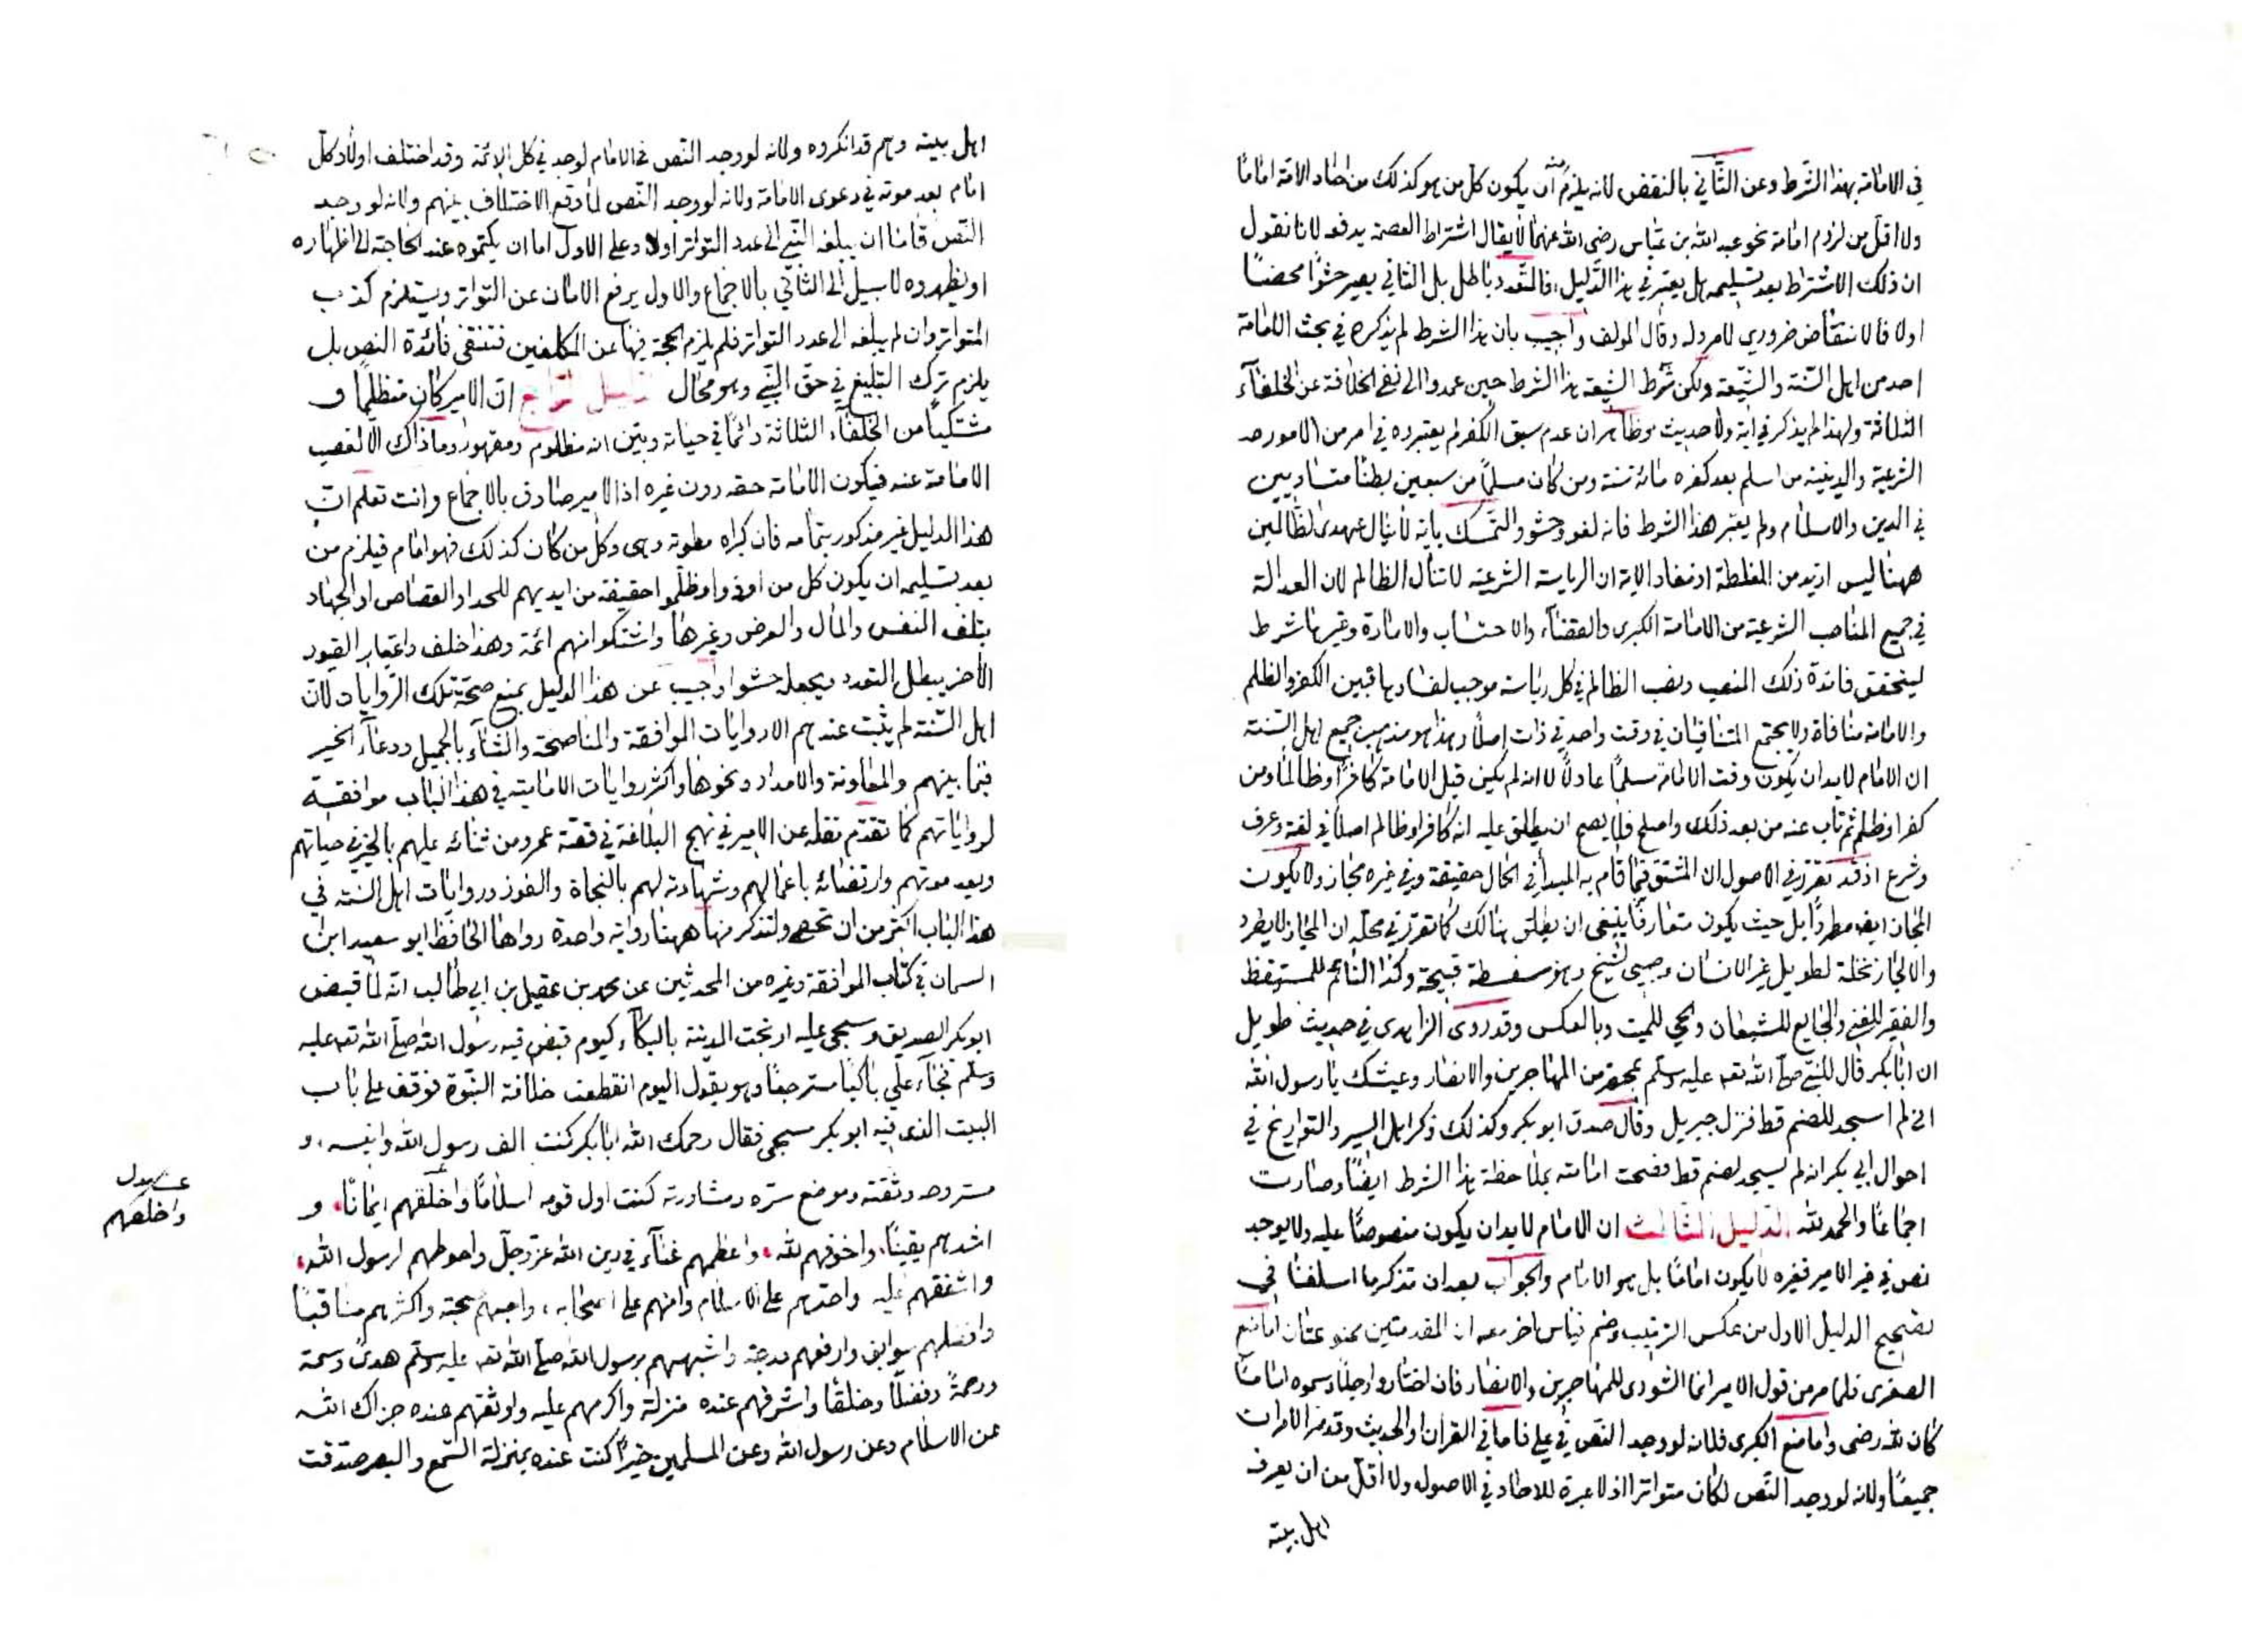 في الامامة بهذا الشرط وعن الثاني بالنقض لانه يلزم منه ان يكون كل من هو كذلك من احاد الامة اماما
ولا اقل من لزوم امامة نحو عبد الله بن عباس رضي الله عنهما لا يقال اشتراط العصمة يدفعه لانا نقول
ان ذلك الاشتراط بعد تسليمه هل يعتبر في هذا الدليل فالتعدد باطل بل الثاني يصير حشوا محضا
اولا فالانتقاض ضروري لا مرد له وقال المولف واجيب بان هذا الشرط لم يذكره في بحث الامامة
احد من اهل السنة والشيعة ولكن شرط الشيعة هذا الشرط حين عمدوا الى نفي الخلافة عن الخلفاء
الثلاثة ولهذا لم يذكر في اية ولا حديث وظاهر ان عدم سبق الكفر لم يعتبروه في امر من الامور
الشرعية والدينية من اسلم بعد كفره مائة سنة ومن كان مسلما من سبعين بطنا متساويين
في الدين والاسلام ولم يعتبر هذا الشرط فانه لغو وحشو والتمسك باية لا ينال عهدي الظالمين
ههنا ليس ازيد من المغلطة اذ مفاد الاية ان الرياسة الشرعية لا تنال الظالم لان العدالة
في جميع المناصب الشرعية من الامامة الكبرى والقضاء والاحتساب والامارة وغيرها شرط
ليتحقق فائدة ذلك المنصب ونصب الظالم في كل رياسة موجب لفسادها فبين الكفر والظلم
والامامة منافاة ولا يجتمع المتنافيان في وقت واحد في ذات اصلا وهذا هو مذهب جميع اهل السنة
ان الامام لا بد ان يكون وقت الامامة مسلما عادلا لا انه لم يكن قبل الامامة كافرا وظالما ومن
كفر او ظلم ثم تاب عنه من بعد ذلك واصلح فلا يصح ان يطلق عليه انه كافر او ظالم اصلا في لغة وعرف
وشرع اذ قد تقرر في الاصول ان المشتق فيما قام به المبدأ في الحال حقيقة وفي غيره مجاز ولا يكون
المجاز ايضا مطردا بل حيث يكون متعارفا ينبغي ان يطلق هنالك كما تقرر في محله ان المجاز لا يطرد
والا لجاز نخلة لطويل غير الانسان وصبي لشيخ وهو سفسطة قبيحة وكذا النائم للمستيقظ
والفقير للغني والجايع للشبعان والحي للميت وبالعكس وقد روى الزاهدي في حديث طويل
ان ابا بكر قال للنبي صلى الله تعه عليه وسلم بمحضر من المهاجرين والانصار وعيشك يا رسول الله
اني لم اسجد للصنم قط فنزل جبريل وقال صدق ابو بكر وكذلك ذكر اهل السير والتواريخ في
احوال ابي بكر انه لم يسجد لصنم قط فصحت امامته بملاحظة هذا الشرط ايضا وصارت
اجماعا والحمد لله الدليل الثالث ان الامام لا بد ان يكون منصوصا عليه ولا يوجد
نص في غير الامير فغيره لا يكون اماما بل هو الامام والجواب بعد ان تذكر ما اسلفنا في
تصحيح الدليل الاول من عكس الترتيب وضم قياس اخر معه ان المقدمتين ممنوعتان اما منع
الصغرى فلما مر من قول الامير انما الشورى للمهاجرين والانصار فان اختاروا رجلا وسموه اماما
كان لله رضى واما منع الكبرى فلانه لو وجد النص في علي فاما في القرآن او الحديث وقد مر الامران
جميعا ولانه لو وجد النص لكان متواترا اذ لا عبرة للاحاد في الاصول ولا اقل من ان يعرفه
اهل بيته
اهل بيته وهم قد انكروه ولانه لو وجد النص في الامام لوجد في كل الائمة وقد اختلف اولاد كل
امام بعد موته في دعوى الامامة ولانه لو وجد النص لما وقع الاختلاف بينهم ولانه لو وجد
النص فاما ان يبلغه النبي الى عدد التواتر اولا وعلى الاول اما ان يكتموه عند الحاجة الى اظهاره
او يظهروه لا سبيل الى الثاني بالاجماع والاول يرفع الامان عن التواتر ويستلزم كذب
المتواتر وان لم يبلغه الى عدد التواتر فلم يلزم الحجة فيها عن المكلفين فتنتفي فائدة النص بل
يلزم ترك التبليغ في حق النبي وهو محال الدليل الرابع ان الامير كان متظلما و
مشتكيا من الخلفاء الثلاثة دائما في حياته وبين انه مظلوم ومقهور وما ذاك الا لغصب
الامامة عنه فيكون الامامة حقه دون غيره اذ الامير صادق بالاجماع وانت تعلم ان
هذا الدليل غير مذكور بتمامه فان كبراه مطوية وهي وكل من كان كذلك فهو امام فيلزم من
بعد تسليمه ان يكون كل من اوذوا وظلموا حقيقة من ايديهم للحد او القصاص او الجهاد
بتلف النفس والمال والعرض وغيرها واشتكوا منهم ائمة وهذا خلف واعتبار القيود
الأخر يبطل التعدد ويجعله حشوا واجيب عن هذا الدليل بمنع صحة تلك الروايات لان
اهل السنة لم يثبت عندهم الا روايات الموافقة والمناصحة والثناء بالجميل ودعاء الخير
فيما بينهم والمعاونة والامداد ونحوها واكثر روايات الامامية في هذا الباب موافقة
لرواياتهم كما تقدم نقله عن الامير في نهج البلاغة في قصة عمر ومن ثنائه عليهم بالخير في حياتهم
وبعد موتهم وارتضائه باعمالهم وشهادته لهم بالنجاة والفوز وروايات اهل السنة في
هذا الباب اكثر من ان تحصى ولنذكر منها ههنا رواية واحدة رواها الحافظ ابو سعيد ابن
السمان في كتاب الموافقة وغيره من المحدثين عن محمد بن عقيل بن ابي طالب انه لما قبض
ابو بكر الصديق وسجي عليه ارتجت المدينة بالبكاء كيوم قبض فيه رسول الله صلى الله تعه عليه
وسلم فجاء علي باكيا مسترجعا وهو يقول اليوم انقطعت خلافة النبوة فوقف على باب
البيت الذي فيه ابو بكر مسجى فقال رحمك الله ابا بكر كنت الف رسول الله وانيسه و
مستروحه وثقته وموضع سره ومشاورته كنت اول قومه اسلاما واخلقهم ايمانا و
واخلصهم
اشدهم يقينا واخوفهم لله واعظمهم غناء في دين الله عز وجل واحوطهم لرسول الله
واشفقهم عليه واحدبهم على الاسلام وامنهم على اصحابه واحسنهم صحبة واكثرهم مناقبا
وافضلهم سوابق وارفعهم درجة واشبههم برسول الله صلى الله تعه عليه وسلم هديا وسمة
ورحمة وفضلا وخلقا واشرفهم عنده منزلة واكرمهم عليه واوثقهم عنده جزاك الله
عن الاسلام وعن رسول الله وعن المسلمين خيرا كنت عنده بمنزلة السمع والبصر صدقت